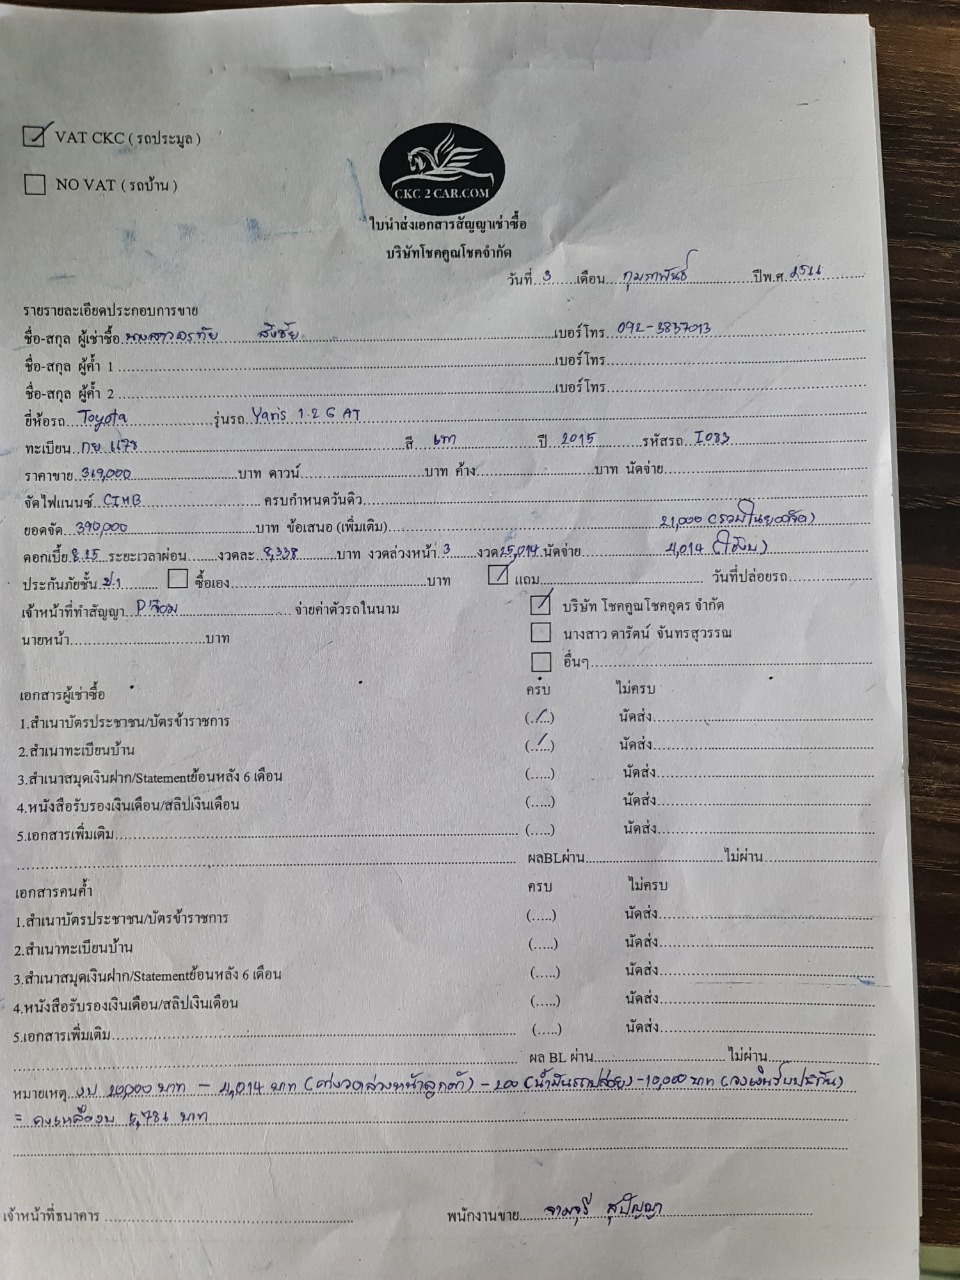 VAT CKC ( รถประมูล )
NO VAT ( รถบ้าน )
CKC 2 CAR.COM
ใบนำส่งเอกสารสัญญาเช่าซื้อ
บริษัทโชคคูณโชคจำกัด
วันที่ 3 เดือน กุมภาพันธ์ ปีพ.ศ.
รายรายละเอียดประกอบการขาย
ชื่อ-สกุล ผู้เช่าซื้อ นางสาวอรทัย เบอร์โทร 092-3837013
ชื่อ-สกุล ผู้ค้ำ 1 เบอร์โทร
ชื่อ-สกุล ผู้ค้ำ 2 เบอร์โทร
ยี่ห้อรถ Toyota รุ่นรถ Yaris 1.2 G AT
ทะเบียน กย สี เทา ปี 2015 รหัสรถ I083
ราคาขาย 369,000 บาท ดาวน์ บาท ค้าง บาท นัดจ่าย
จัดไฟแนนซ์ CIMB ครบกำหนดวันดิว
ยอดจัด 390,000 บาท ข้อเสนอ (เพิ่มเติม) 21,000 (รวมในยอดจัด)
ดอกเบี้ย 8.25 ระยะเวลาผ่อน งวดละ 8,338 บาท งวดล่วงหน้า 3 งวด 25,014 นัดจ่าย 4,014 (ใช้งบ)
ประกันภัยชั้น ป.1 ซื้อเอง บาท แถม วันที่ปล่อยรถ
เจ้าหน้าที่ทำสัญญา P'จ๋อม จ่ายค่าตัวรถในนาม บริษัท โชคคูณโชคอุดร จำกัด
นายหน้า บาท นางสาว ดารัตน์ จันทรสุวรรณ
อื่นๆ
เอกสารผู้เช่าซื้อ ครบ ไม่ครบ
1.สำเนาบัตรประชาชน/บัตรข้าราชการ (../..) นัดส่ง
2.สำเนาทะเบียนบ้าน (../..) นัดส่ง
3.สำเนาสมุดเงินฝาก/Statementย้อนหลัง 6 เดือน (.....) นัดส่ง
4.หนังสือรับรองเงินเดือน/สลิปเงินเดือน (.....) นัดส่ง
5.เอกสารเพิ่มเติม (.....) นัดส่ง
ผลBLผ่าน ไม่ผ่าน
เอกสารคนค้ำ ครบ ไม่ครบ
1.สำเนาบัตรประชาชน/บัตรข้าราชการ (.....) นัดส่ง
2.สำเนาทะเบียนบ้าน (.....) นัดส่ง
3.สำเนาสมุดเงินฝาก/Statementย้อนหลัง 6 เดือน (.....) นัดส่ง
4.หนังสือรับรองเงินเดือน/สลิปเงินเดือน (.....) นัดส่ง
5.เอกสารเพิ่มเติม (.....) นัดส่ง
ผล BL ผ่าน ไม่ผ่าน
หมายเหตุ งบ 20,000 บาท - 4,014 บาท (ค่างวดล่วงหน้าลูกค้า) - 200 (น้ำมันรถปล่อย) - 10,000 บาท
= คงเหลืองบ 5,786 บาท
เจ้าหน้าที่ธนาคาร พนักงานขาย จามจุรี สุปัญญา